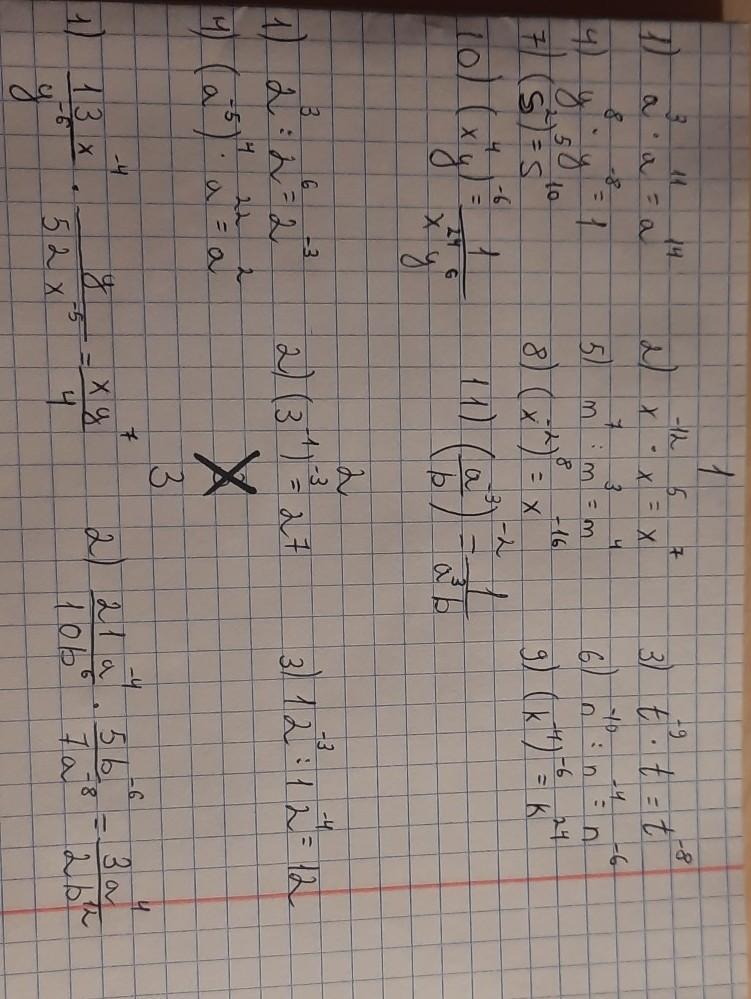 1
1) a³ · a¹¹ = a¹⁴ 2) x⁻¹² · x⁵ = x⁷ 3) t⁻⁹ · t = t⁻⁸
4) y⁸ · y⁻⁸ = 1 5) m⁷ : m³ = m⁴ 6) n⁻¹⁰ : n⁻⁴ = n⁻⁶
7) (s²)⁵ = s¹⁰ 8) (x⁻²)⁸ = x⁻¹⁶ 9) (k⁻⁴)⁻⁶ = k²⁴
10) (x⁴y)⁻⁶ = 1/x²⁴y⁶ 11) (a⁻³/b)⁻² = 1/a³b
2
1) 2³ : 2⁶ = 2⁻³ 2) (3⁻¹)⁻³ = 27 3) 12⁻³ : 12⁻⁴ = 12
4) (a⁻⁵)⁴ · a²² = a²
3
1) 13x⁻⁴/y⁻⁶ · y/52x⁻⁵ = xy⁷/4 2) 21a⁻⁴/10b⁶ · 5b⁻⁶/7a⁻⁸ = 3a⁴/2b¹²